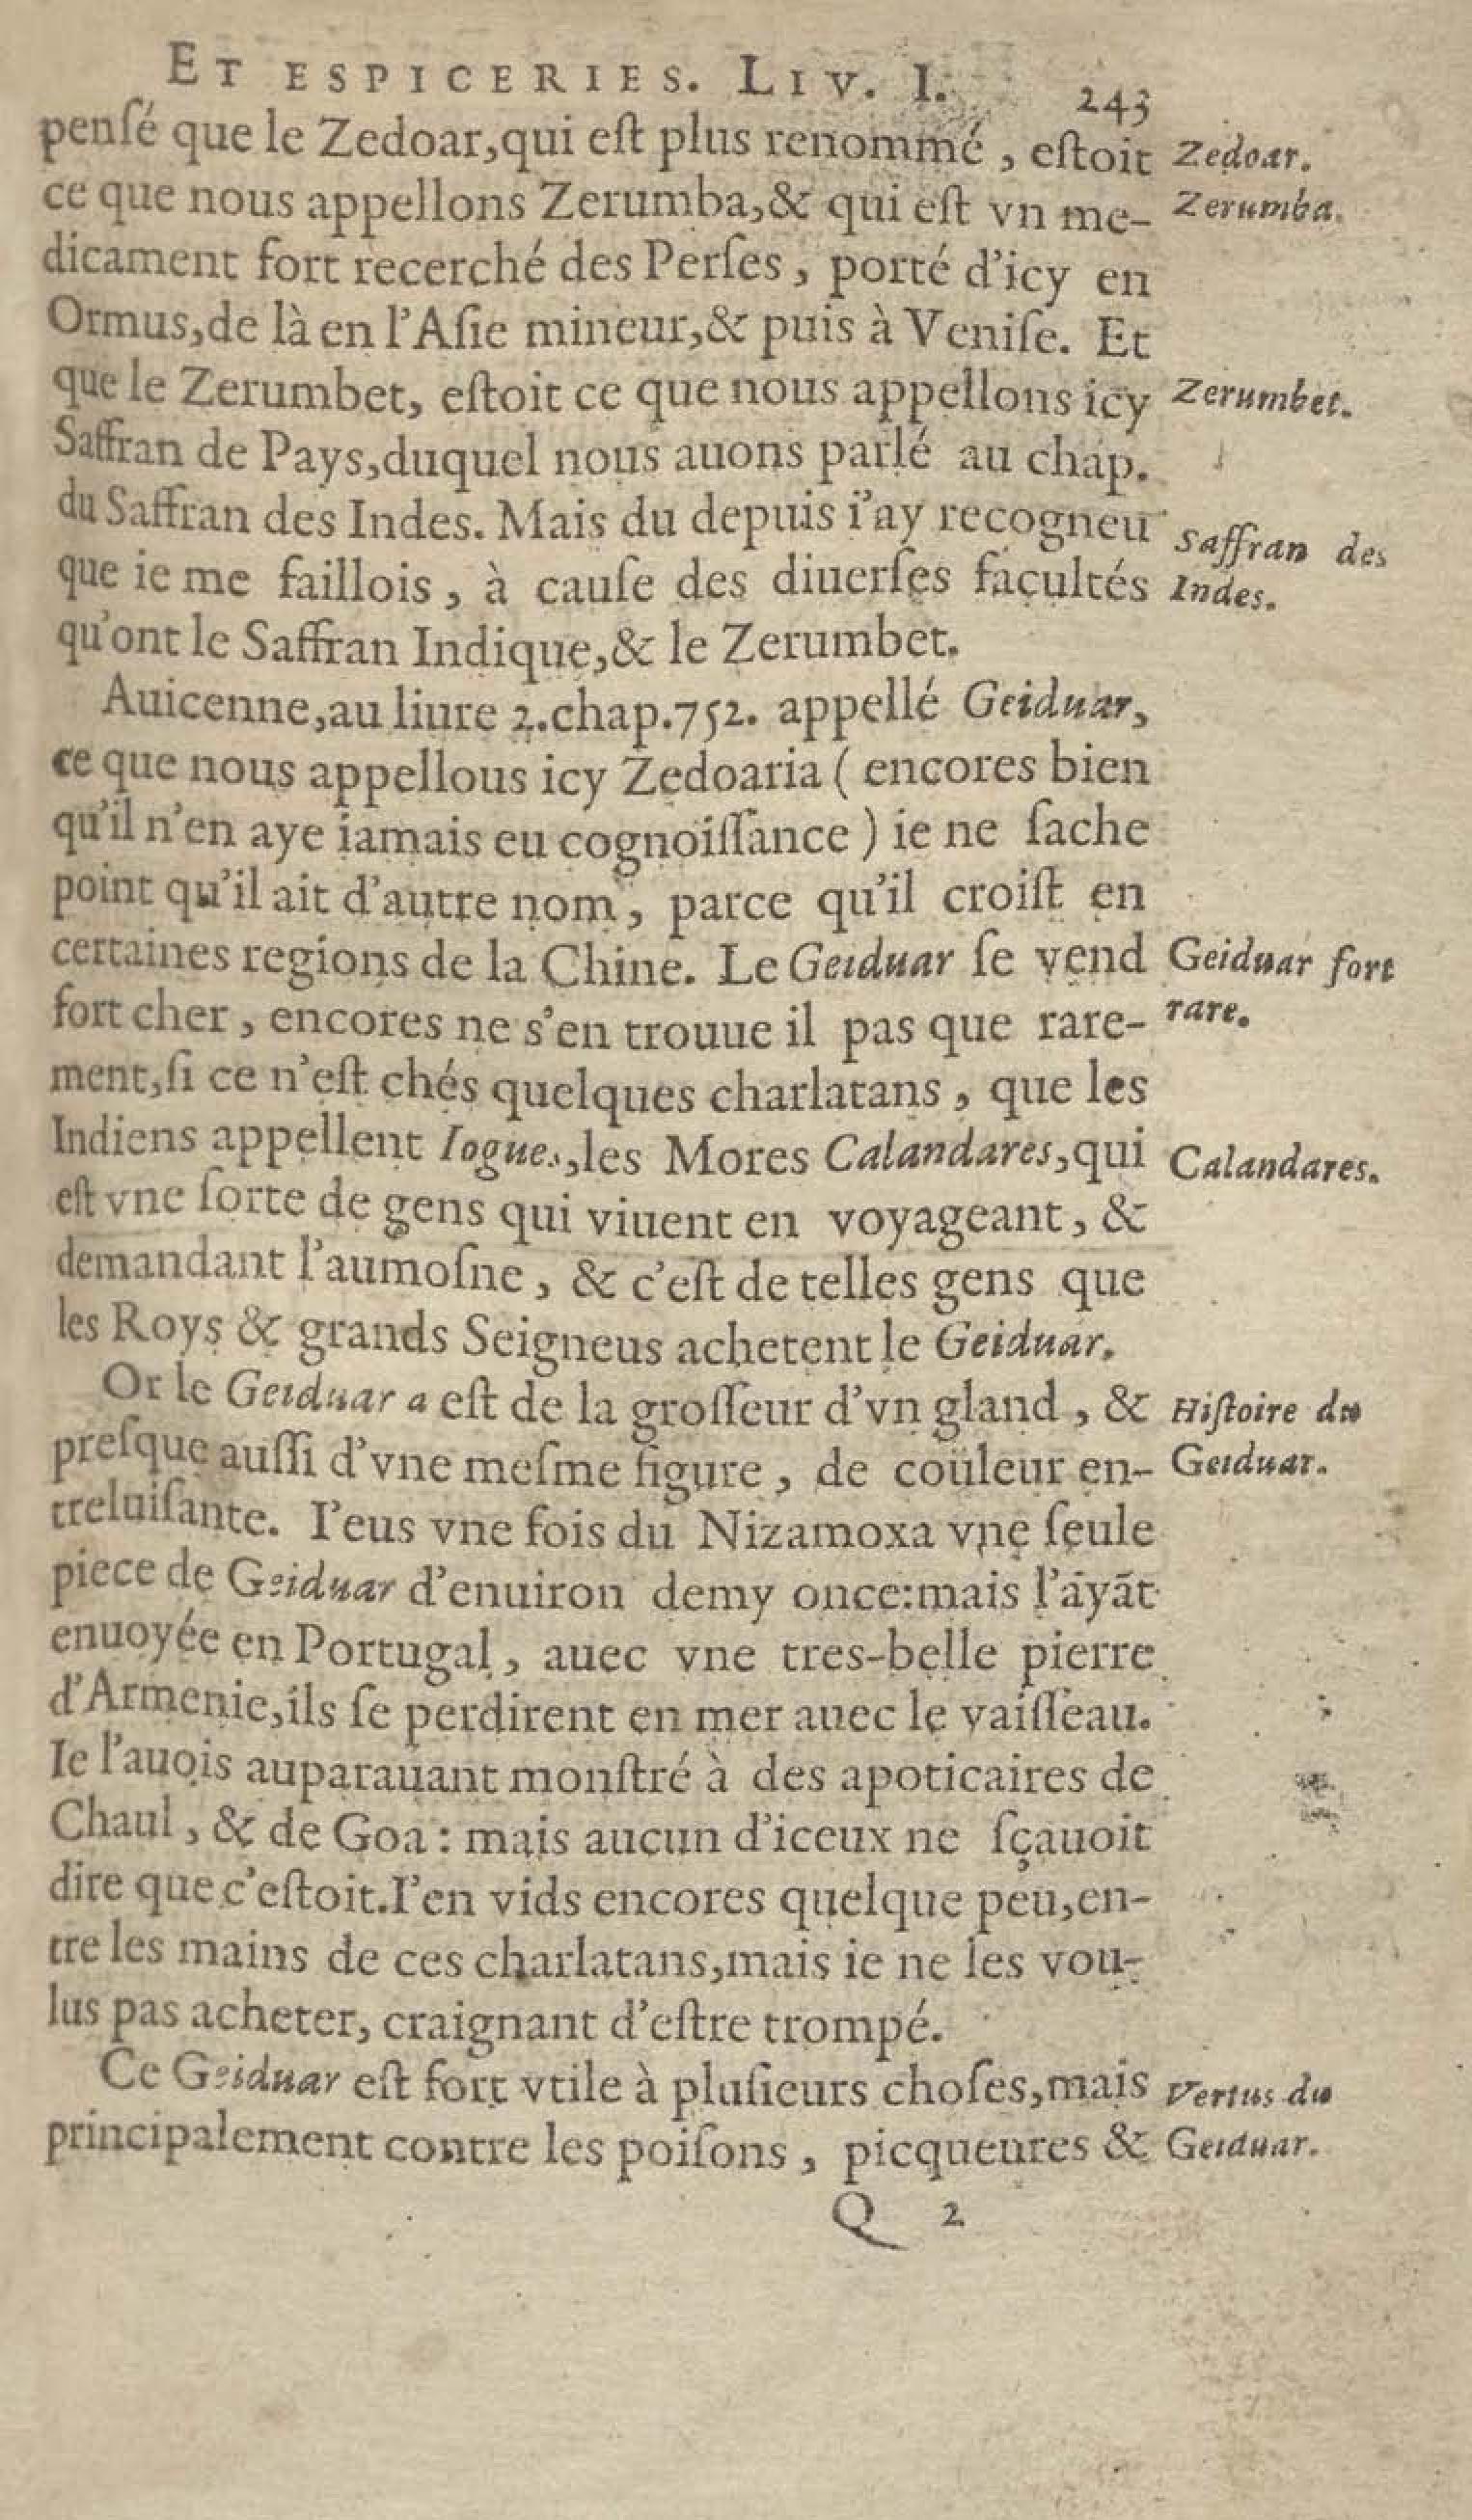 ET ESPICERIES. LIV. I. 243
penſé que le Zedoar,qui eſt plus renommé , eſtoit
Zedoar.
ce que nous appellons Zerumba,& qui eſt vn me-
Zerumba.
dicament fort recerché des Perſes , porté d'icy en
Ormus,de là en l'Aſie mineur,& puis à Veniſe. Et
que le Zerumbet, eſtoit ce que nous appellons icy
Zerumbet.
Saffran de Pays,duquel nous auons parlé au chap.
du Saffran des Indes. Mais du depuis i'ay recogneu
Saffran des
que ie me faillois , à cauſe des diuerſes facultés
Indes.
qu'ont le Saffran Indique,& le Zerumbet.
Auicenne,au liure 2.chap.752. appellé Geiduar,
ce que nous appellous icy Zedoaria ( encores bien
qu'il n'en aye iamais eu cognoiſſance ) ie ne ſache
point qu'il ait d'autre nom , parce qu'il croiſt en
certaines regions de la Chine. Le Geiduar ſe vend
Geiduar fort
fort cher , encores ne s'en trouue il pas que rare-
rare.
ment,ſi ce n'eſt chés quelques charlatans , que les
Indiens appellent Iogues,les Mores Calandares,qui
Calandares.
eſt vne ſorte de gens qui viuent en voyageant , &
demandant l'aumoſne , & c'eſt de telles gens que
les Roys & grands Seigneus achetent le Geiduar.
Or le Geiduar a eſt de la groſſeur d'vn gland , &
Hiſtoire du
preſque auſſi d'vne meſme figure , de couleur en-
Geiduar.
treluiſante. I'eus vne fois du Nizamoxa vne ſeule
piece de Geiduar d'enuiron demy once:mais l'ayãt
enuoyée en Portugal , auec vne tres-belle pierre
d'Armenie,ils ſe perdirent en mer auec le vaiſſeau.
Ie l'auois auparauant monſtré à des apoticaires de
Chaul , & de Goa : mais aucun d'iceux ne ſçauoit
dire que c'eſtoit.I'en vids encores quelque peu,en-
tre les mains de ces charlatans,mais ie ne les vou-
lus pas acheter, craignant d'eſtre trompé.
Ce Geiduar eſt fort vtile à pluſieurs choſes,mais
Vertus du
principalement contre les poiſons , picqueures &
Geiduar.
Q 2